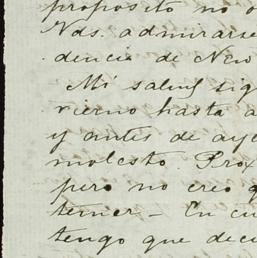 proposito no o
Nds. admirarse
dencia de New
Mi salud sig
vierno hasta a
y antes de aye
molesto. Prox
pero no creo q
temer - En cu
tengo que deci